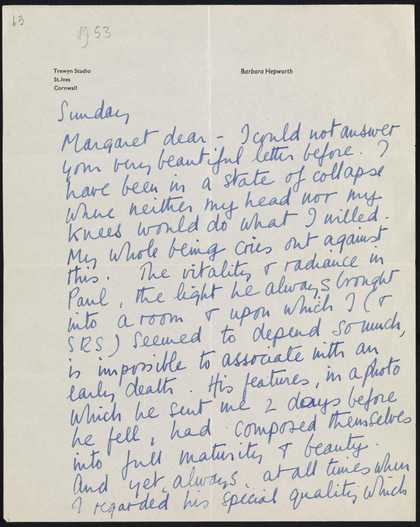 63
1953
Trewyn Studio
St.Ives
Cornwall
Barbara Hepworth
Sunday
Margaret dear - I could not answer
your very beautiful letter before. I
have been in a state of collapse
where neither my head nor my
knees would do what I willed.
My whole being cries out against
this. The vitality & radiance in
Paul, the light he always brought
into a room & upon which I (&
SRS) seemed to depend so much,
is impossible to associate with an
early death. His features, in a photo
which he sent me 2 days before
he fell, had composed themselves
into full maturity & beauty.
And yet, always, at all times when
I regarded his special quality which